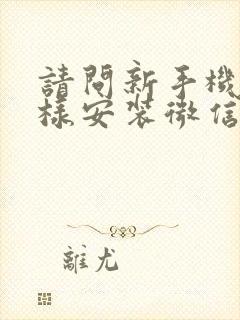 請問新手機
樣安裝微信
離尤